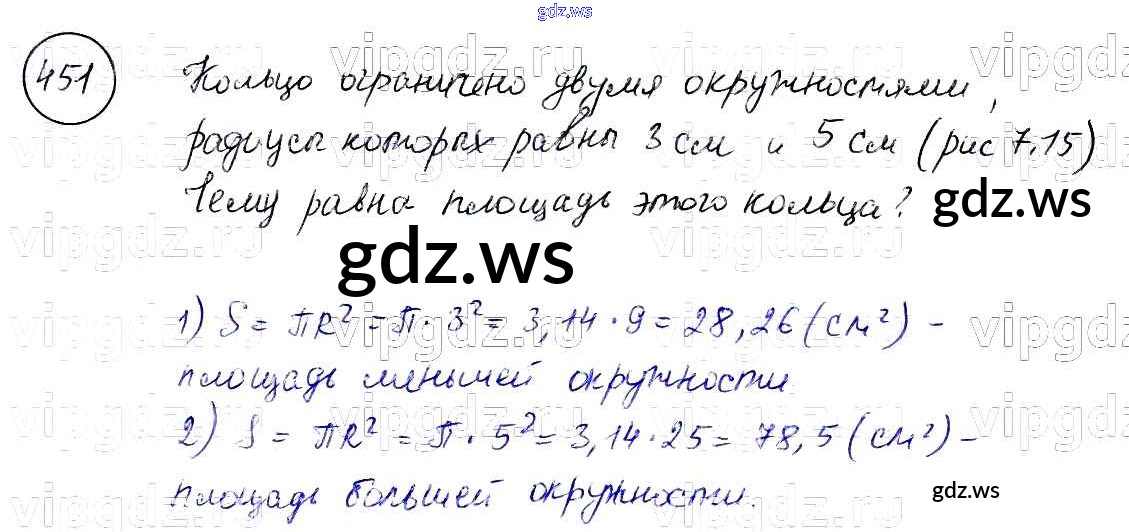 gdz.ws
451
Кольцо ограничено двумя окружностями,
радиусы которых равны 3 см и 5 см (рис 7.15)
Чему равна площадь этого кольца?
gdz.ws
gdz.ws
1) S = πR² = π · 3² = 3,14 · 9 = 28,26 (см²) –
площадь меньшей окружности.
2) S = πR² = π · 5² = 3,14 · 25 = 78,5 (см²) –
площадь большей окружности.
gdz.ws
vipgdz.ru